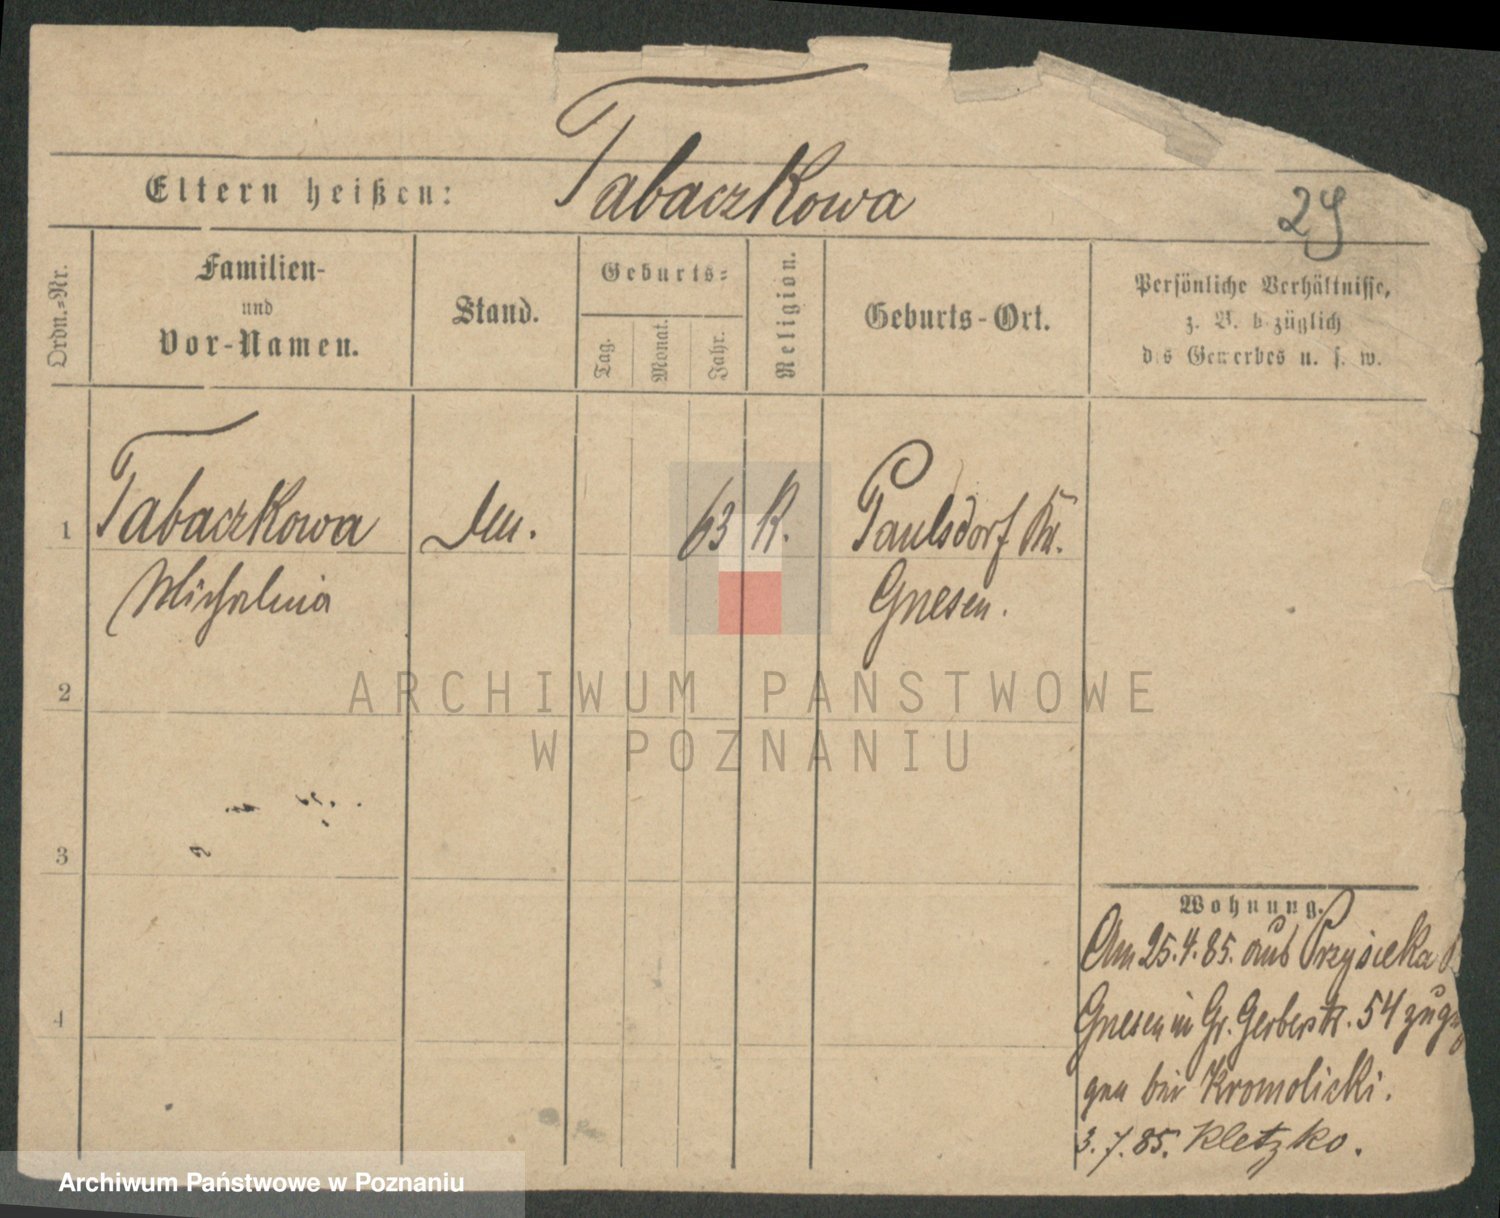 Tabaczkowa
Eltern heißen:
29
Ordn.-Nr.
Familien-
und
Vor-Namen.
Stand.
Geburts-
Tag.
Monat.
Jahr.
Religion.
Geburts-Ort.
Persönliche Verhältnisse,
z. B. bezüglich
des Gewerbes u. s. w.
1
Tabaczkowa
63
K.
Paulsdorf Kr.
Michalina
Gnesen.
2
ARCHIWUM PAŃSTWOWE
W POZNANIU
3
Wohnung.
Am 25.4.85. aus Przysieka
4
Gnesen in Gr. Gerberstr. 54 zuge
gen bei Kromolicki.
3.7.85. Kletzko.
Archiwum Państwowe w Poznaniu